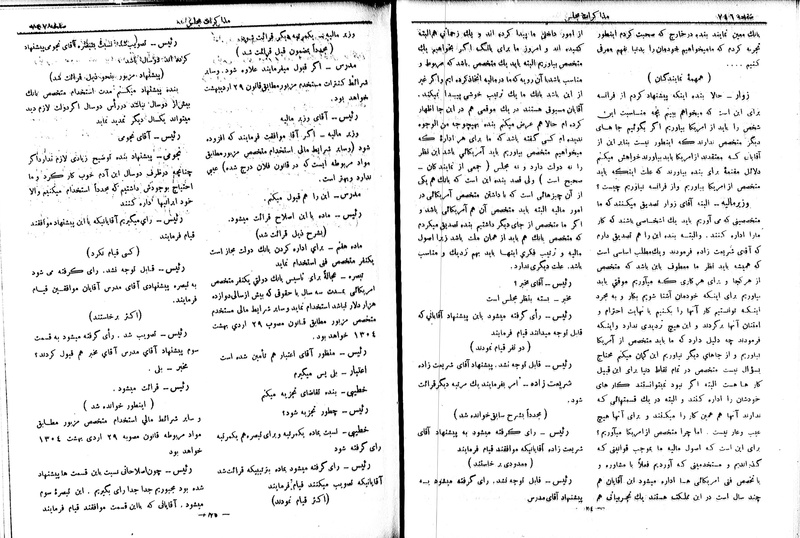 صفحه ۷۴۶
مذاکرات مجلس
بانک معین نماینده بنده در خارج که صحبت کردم اینطور
تجربه کردم که ما میخواهیم خودمان را بدنیا نفهم معرفی
کنیم ....
( همهمهٔ نمایندگان )
زوار - حالا بنده اینکه پیشنهاد کردم از فرانسه
برای این است که میخواهم ببینم بچه مناسبت این
شخص را باید از امریکا بیاوریم اگر بگوئیم جاهای
دیگر متخصص ندارند که اینطور نیست بنابر این از
آقایان که معتقدند از امریکا باید بیاورند خواهش میکنم
دلائل مقنعهٔ برای بنده بیاورند که علت اینکه باید
متخصص از امریکا بیاوریم و از فرانسه نیاوریم چیست ؟
وزیر مالیه - البته آقای زوار تصدیق میکنند که ما
متخصصینی که می آوریم باید یک اشخاصی باشند که کار
ما را اداره کنند . والبته بنده این را هم تصدیق دارم
که آقای شریعت زاده فرمودند ویک مطلب اساسی است
که همیشه باید نظر ما معطوف باین باشد که متخصص
از هر کجا و برای هر کاری که میآوریم موقتی باید
بیاوریم برای اینکه خودمان آشنا شویم بکار و به مجرد
اینکه توانستیم کار آنها را بکنیم با نهایت احترام و
امتنان آنها برگردند و این هیچ تردیدی ندارد و اینکه
فرمودند چه دلیل دارد که ما باید متخصص از آمریکا
بیاوریم و از جاهای دیگر نیاوریم این گمان میکنم محتاج
بسؤال نیست متخصص در تمام نقاط دنیا برای این قبیل
کار ها هست البته اگر نبود نمیتوانستند کار های
خودشان را اداره کنند و البته در یک قسمتهائی که
ندارند آنها هم همین کار را میکنند و برای آنها هیچ
عیب و عار نیست . اما چرا متخصص از آمریکا میآوریم ؟
برای این است که اصول مالیه ما بموجب قوانینی که
گذراندیم و مستخدمینی که آوردیم فعلا با مشاوره و
با تخصص فنی امریکائی ها اداره میشود این آقایان هم
چند سال است در این مملکت هستند یک تجربیاتی هم
از امور داخلی ما پیدا کرده اند و یک زحماتی هم البته
کشیده اند و امروز ما برای بانک اگر بخواهیم یک
متخصص بیاوریم البته باید یک متخصص باشد که مربوط و
مناسب باشد با آن رویه که ما در مالیه اتخاذ کرده ایم و اگر غیر
از این باشد بانک ما یک ترتیب خوشی پیدا نمیکند .
آقایان مسبوق هستند در یک موقعی هم در این جا اظهار
کرده ام حالا هم عرض میکنم بنده بهیچوجه من الوجوه
ندیده ام کسی گفته باشد که ما برای هر ادارهٔ که
میخواهیم متخصص بیاوریم باید آمریکائی باشد این نظر
را نه دولت دارد و نه مجلس ( جمعی از نمایندگان -
صحیح است ) ولی قصد بنده این است که بانک هم یکی
از آن چیزهائی است که با داشتن متخصص آمریکائی در
امور مالیه البته باید متخصص آن هم آمریکائی باشد و
اگر ما متخصص از جای دیگر داشتیم بنده تصدیق میکردم
که متخصص بانک هم باید از همان ملت باشد زیرا اصول
مالیه و ترتیب فکری اینها باید بهم نزدیک و متناسب
باشد . علت دیگری ندارد .
رئیس - آقای مخبر ؟
مخبر - بسته بنظر مجلس است
رئیس - رأی گرفته میشود باین پیشنهاد آقایانی که
قابل توجه میدانند قیام فرمایند
( دو نفر قیام نمودند )
رئیس - قابل توجه نشد . پیشنهاد آقای شریعت زاده
شریعت زاده - امر بفرمایند یک مرتبه دیگر قرائت
شود .
( مجدداً بشرح سابق خوانده شد )
رئیس - رأی گرفته میشود به پیشنهاد آقای
شریعت زاده آقایانیکه موافقند قیام فرمایند
( معدودی برخاستند )
رئیس - قابل توجه نشد . رأی گرفته میشود به
پیشنهاد آقای مدرس
مذاکرات مجلس
وزیر مالیه - یکمرتبه دیگر قرائت شود
( مجدداً بمضمون قبل قرائت شد )
مدرس - اگر قبول میفرمایند علاوه شود . و سایر
شرائط کنترات مستخدم مزبور مطابق قانون ۲۹ اردیبهشت
خواهد بود .
رئیس - آقای وزیر مالیه
وزیر مالیه - اگر آقا موافقت فرمایند که افزوده
شود ( وسایر شرائط مالی استخدام متخصص مزبور مطابق
مواد مربوطه ایست که در قانون فلان درج شده ) عیبی
ندارد و بهتر است .
مدرس - این را هم قبول میکنم .
رئیس - ماده با این اصلاح قرائت میشود .
( بشرح ذیل قرائت شد )
ماده هفتم - برای اداره کردن بانک دولت مجاز است
یکنفر متخصص فنی استخدام نماید
تبصره - مجالهٔ تأسیس بانک دولتی یکنفر متخصص
آمریکائی بمدت سه سال با حقوقی که بیش از سالی دوازده
هزار دلار نباشد استخدام نماید و سایر شرائط مالی مستخدم
متخصص مزبور مطابق قانون مصوب ۲۹ اردی بهشت
۱۳۰۴ خواهد بود .
رئیس - منظور آقای اعتبار هم تأمین شده است
اعتبار - بلی پس میگیرم
خطیبی - بنده تقاضای تجزیه میکنم
رئیس - چطور تجزیه شود ؟
خطیبی - نسبت بماده یکمرتبه و برای تبصره هم یکمرتبه
رأی گرفته شود
رئیس - رأی گرفته میشود بماده بترتیبیکه قرائت شد
آقایانیکه تصویب میکنند قیام فرمایند
( اکثر قیام نمودند )
رئیس - تصویب شد . نسبت بتبصره آقای نجومی پیشنهاد
کرده اند
( پیشنهاد مزبور بنحو ذیل قرائت شد )
بنده پیشنهاد میکنم مدت استخدام متخصص بانک
بیش از دوسال نباشد در رأس دوسال اگر دولت لازم دید
میتواند یکسال دیگر تمدید نماید
رئیس - آقای نجومی
نجومی - پیشنهاد بنده توضیح زیادی لازم ندارد اگر
چنانچه در ظرف دوسال این آدم خوب کار کرد و ما
احتیاج بوجودش داشتیم که مجدداً استخدام میکنیم والا
خود ایرانیها اداره کنند
رئیس - رأی میگیریم آقایانیکه با این پیشنهاد موافقند
قیام فرمایند
( کسی قیام نکرد )
رئیس - قابل توجه نشد . رأی گرفته می شود
به تبصره پیشنهادی آقای مدرس آقایان موافقین قیام
فرمایند .
( اکثر برخاستند )
رئیس - تصویب شد . رأی گرفته میشود به قسمت
سوم پیشنهاد آقای مدرس آقای مخبر هم قبول کردند ؟
مخبر - بلی .
رئیس - قرائت میشود .
( اینطور خوانده شد )
و سایر شرائط مالی استخدام متخصص مزبور مطابق
مواد مربوطه قانون مصوبه ۲۹ اردی بهشت ۱۳۰۴
خواهد بود
رئیس - چون اصلاحاتی نسبت باین قسمت ها پیشنهاد
شده بود مجبوریم جدا جدا رأی بگیریم . این تبصرهٔ سوم
میشود . آقایانی که با این قسمت موافقند قیام فرمایند